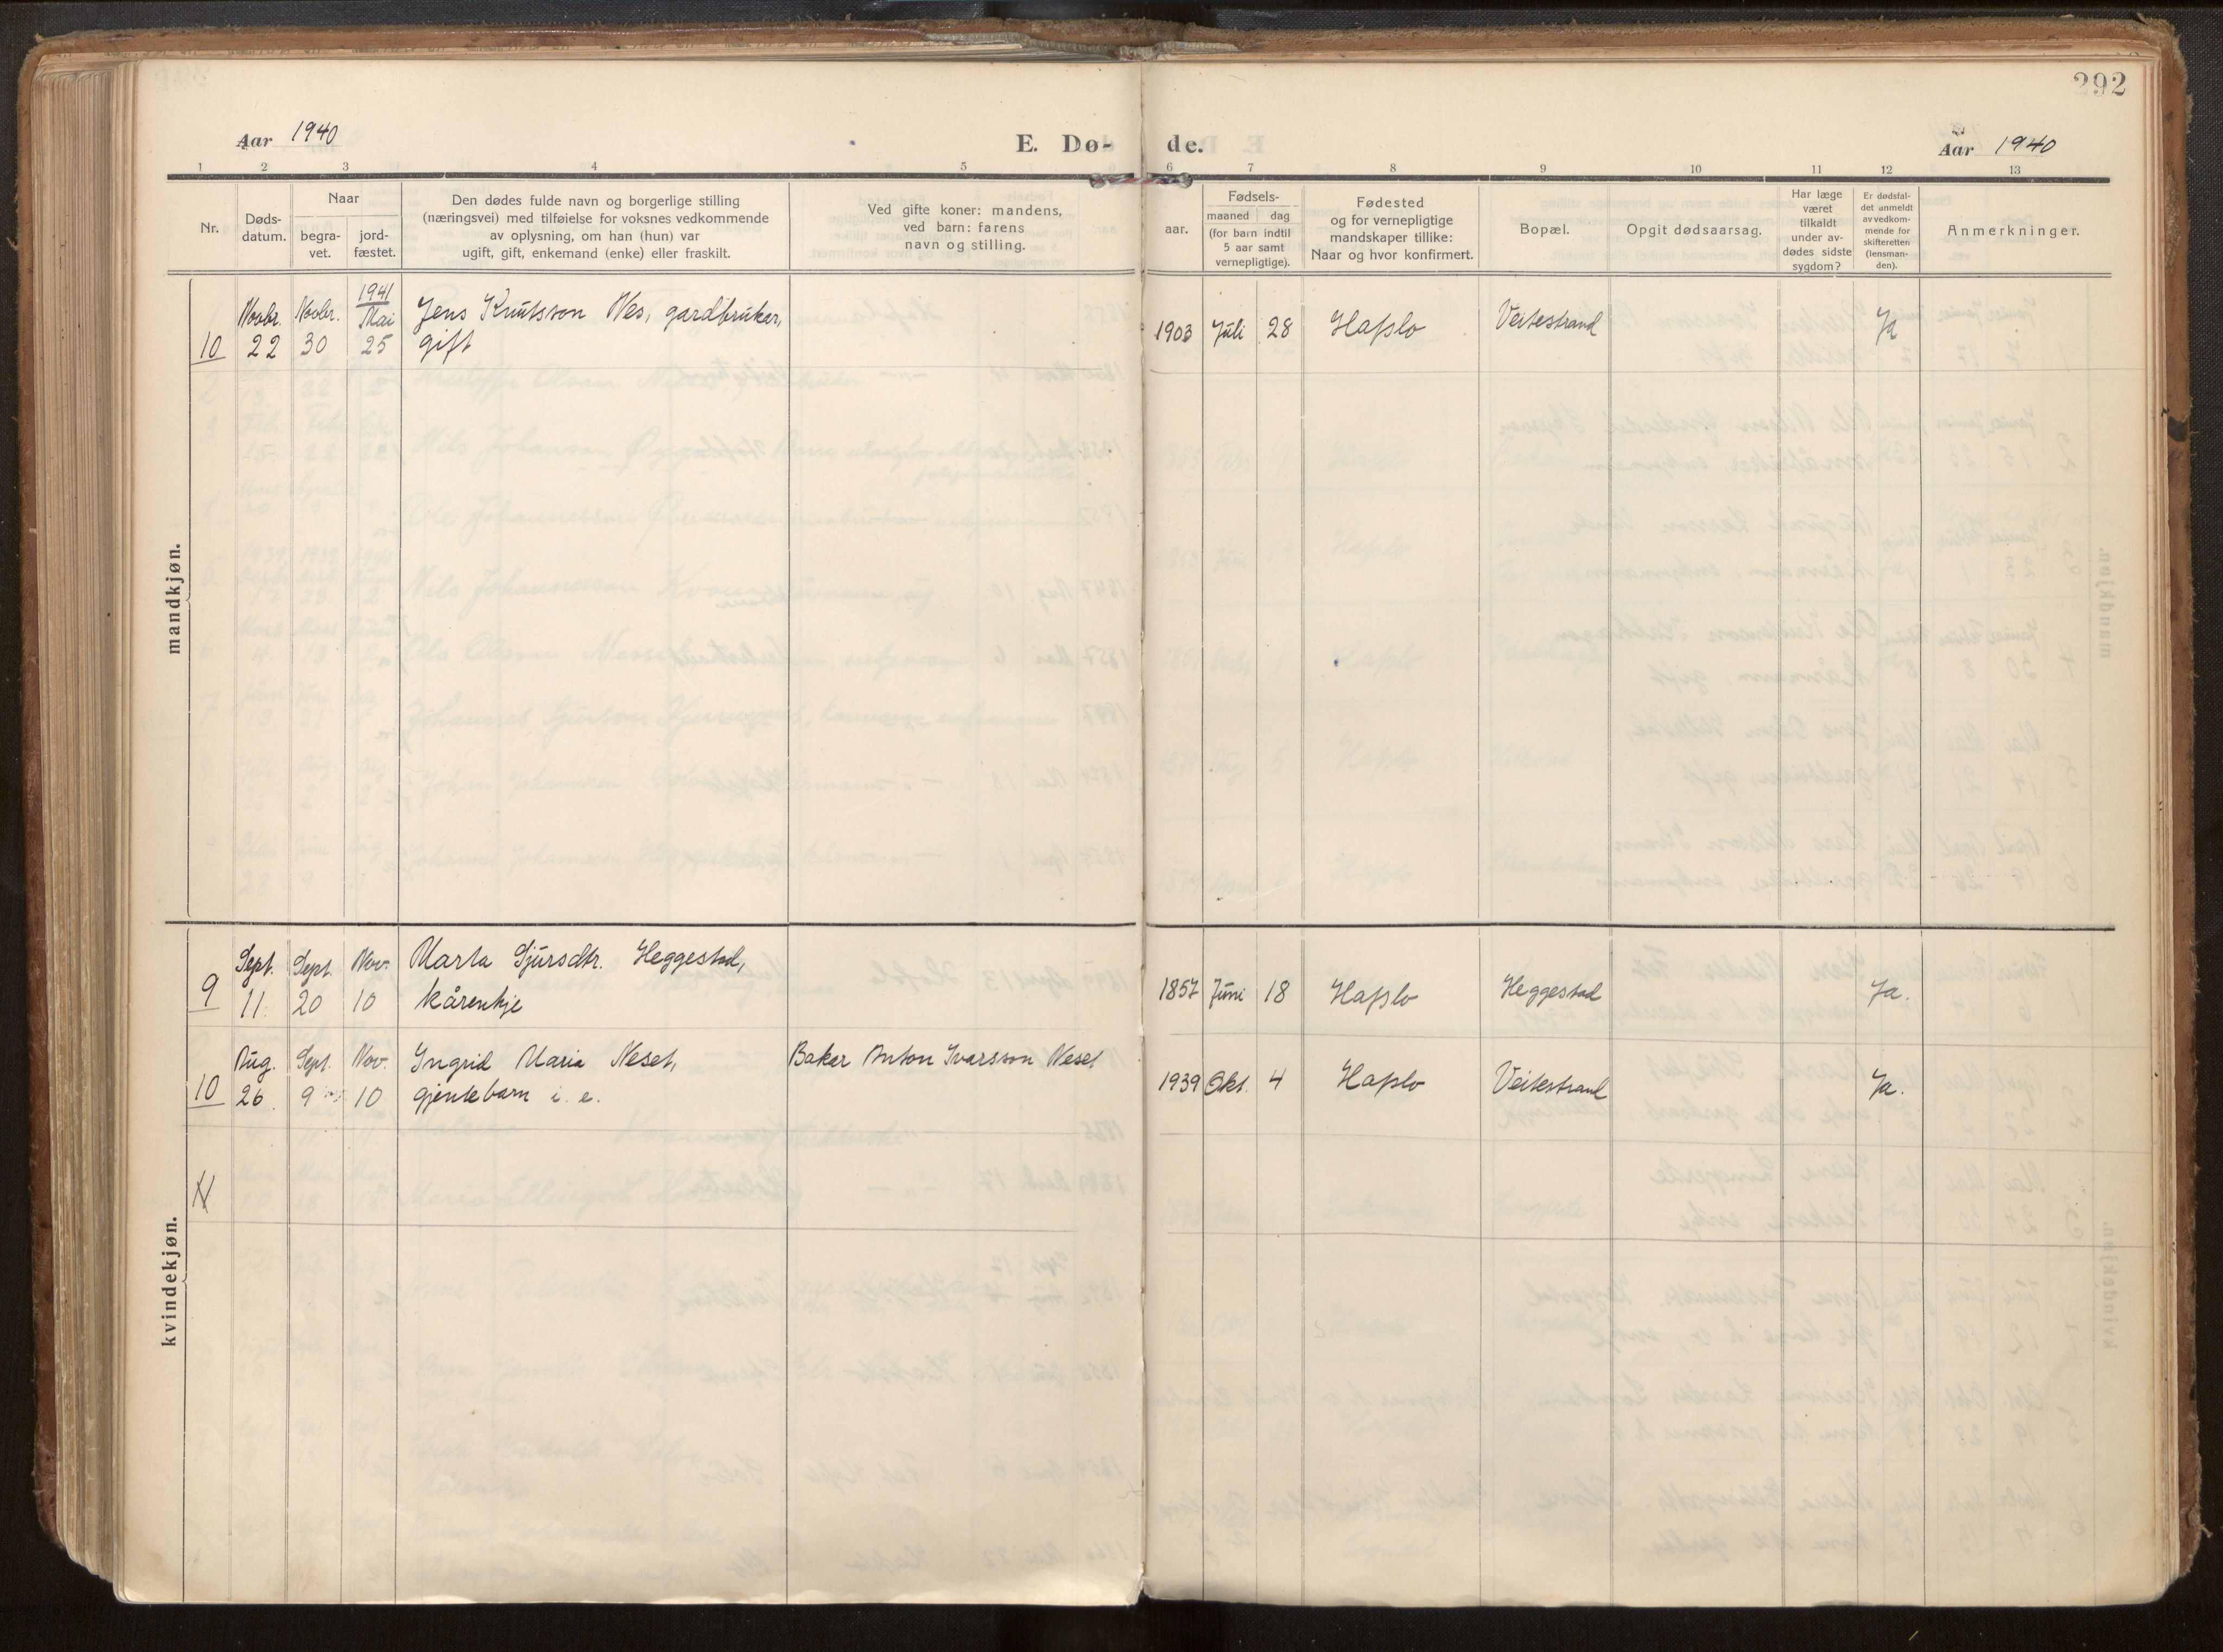 292
Aar 1940
E. Dø-
de.
Aar 1940
1 2 3 4 5 6 7 8 9 10 11 12 13
Nr.
Døds-
datum.
Naar
begra-
vet.
jord-
fæstet.
Den dødes fulde navn og borgerlige stilling
(næringsvei) med tilføielse for voksnes vedkommende
av oplysning, om han (hun) var
ugift, gift, enkemand (enke) eller fraskilt.
Ved gifte koner: mandens,
ved barn: farens
navn og stilling.
Fødsels-
aar.
maaned
dag
(for barn indtil
5 aar samt
vernepligtige).
Fødested
og for vernepligtige
mandskaper tillike:
Naar og hvor konfirmert.
Bopæl.
Opgit dødsaarsag.
Har læge
været
tilkaldt
under av-
dødes sidste
sygdom?
Er dødsfal-
det anmeldt
av vedkom-
mende for
skifteretten
(lensman-
den).
Anmerkninger.
mandkjøn.
1941
Novbr. Novbr. Mai Jens Knutsson Nes, gardbrukar,
10 22 30 25 gift
1903 Juli 28 Hafslo Veitestrand Ja
kvindekjøn.
Sept. Sept. Nov. Marta Sjursdtr. Heggestad,
9 11. 20 10 kårenkje
1857 Juni 18 Hafslo Heggestad Ja.
Aug. Sept. Nov. Ingrid Maria Neset, Baker Anton Ivarsson Neset
10 26. 9 10 gjentebarn i. e.
1939 Okt. 4 Hafslo Veitestrand Ja.